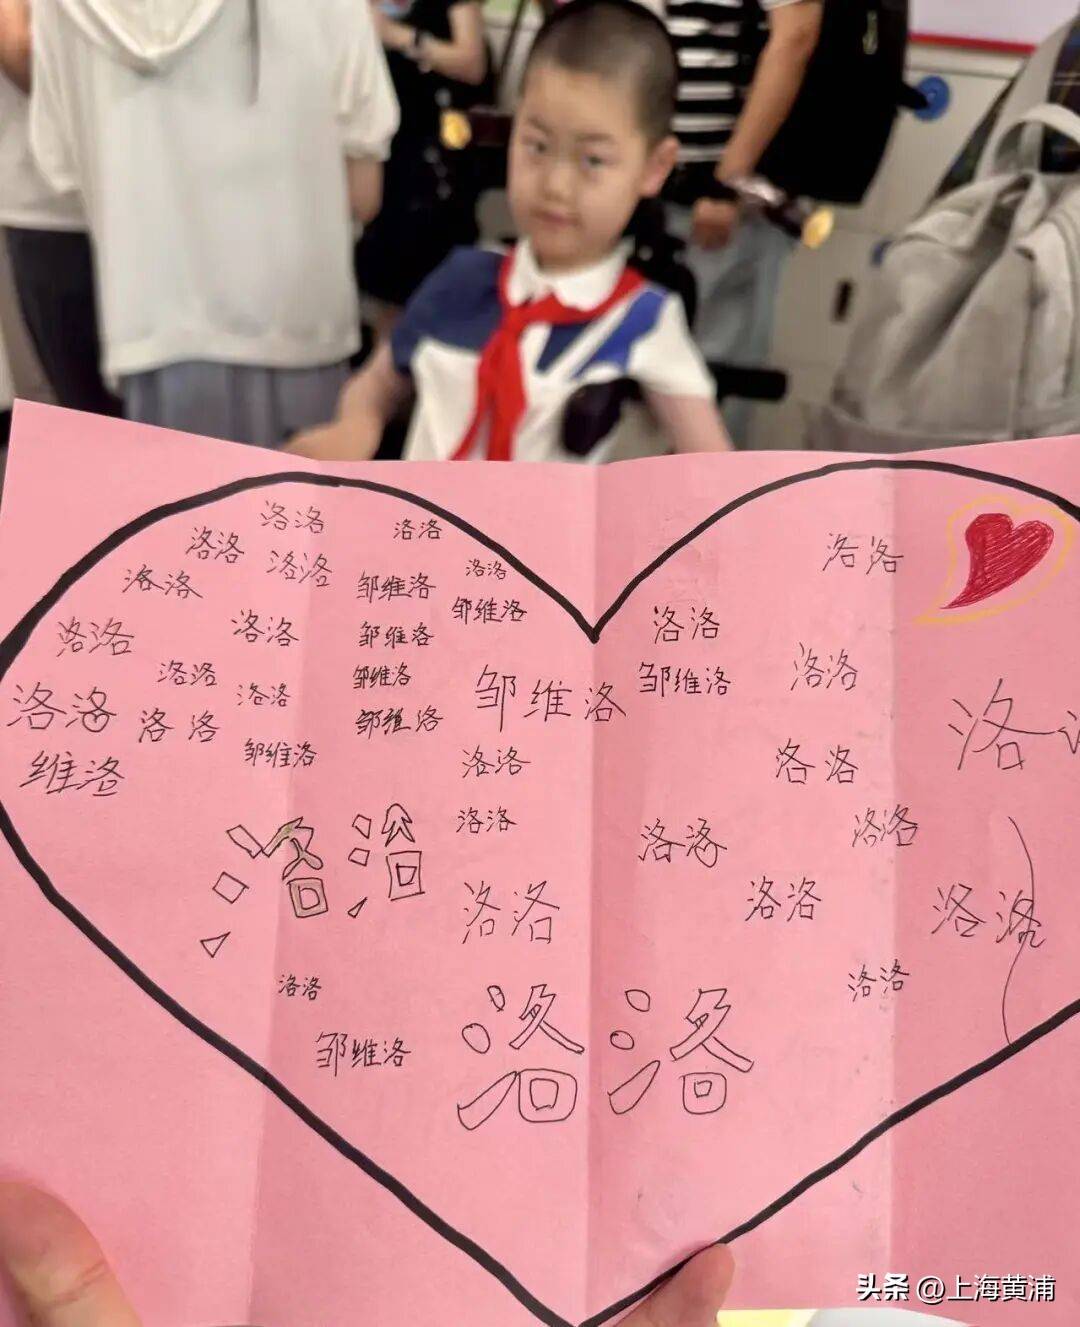 洛洛
洛洛
洛洛
洛洛
洛洛
洛洛
邹维洛
洛洛
邹维洛
洛洛
洛洛
邹维洛
洛洛
洛洛
邹维洛
洛洛
洛洛
洛洛
邹维洛
维洛
邹维洛
邹维洛
洛洛
洛洛
洛洛
洛洛
洛洛
洛洛
邹维洛
洛洛
洛洛
邹维洛
洛洛
洛
洛洛
洛洛
洛洛
洛洛
洛洛
洛洛
洛洛
头条 @上海黄浦